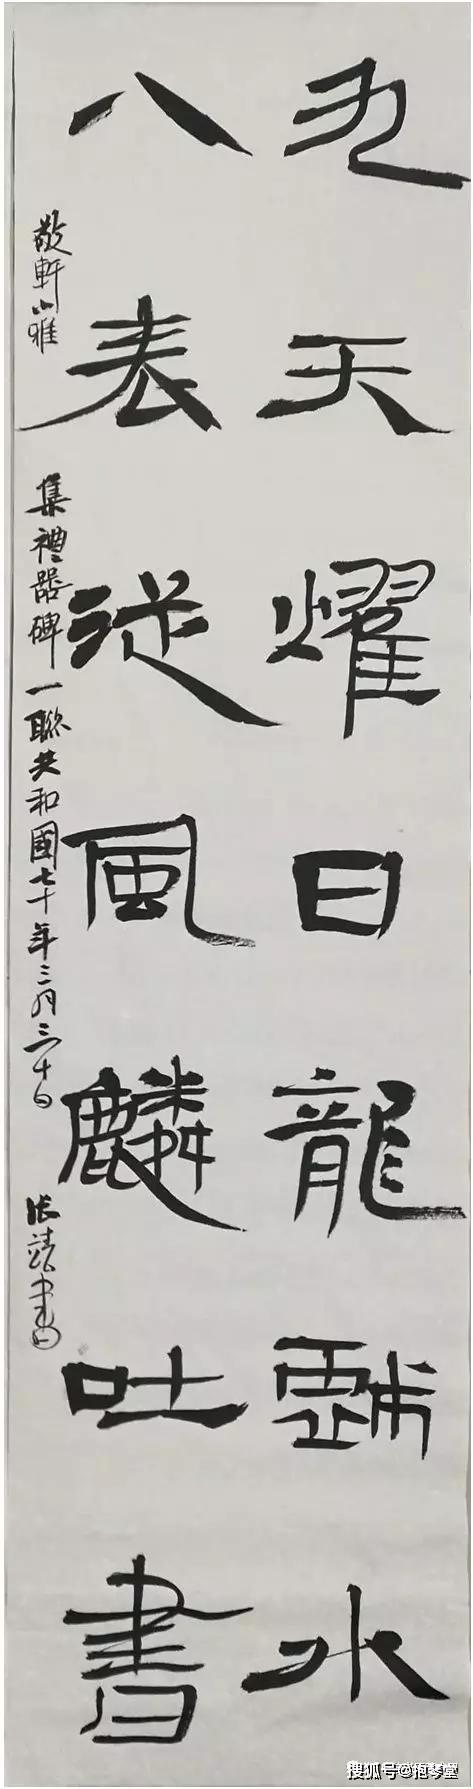 九天燿日龍戲水
八表從風麟吐書
敬軒小雅
集禮器碑一聯共和國七十年三月三十日
張靖書
搜狐号@抱琴堂